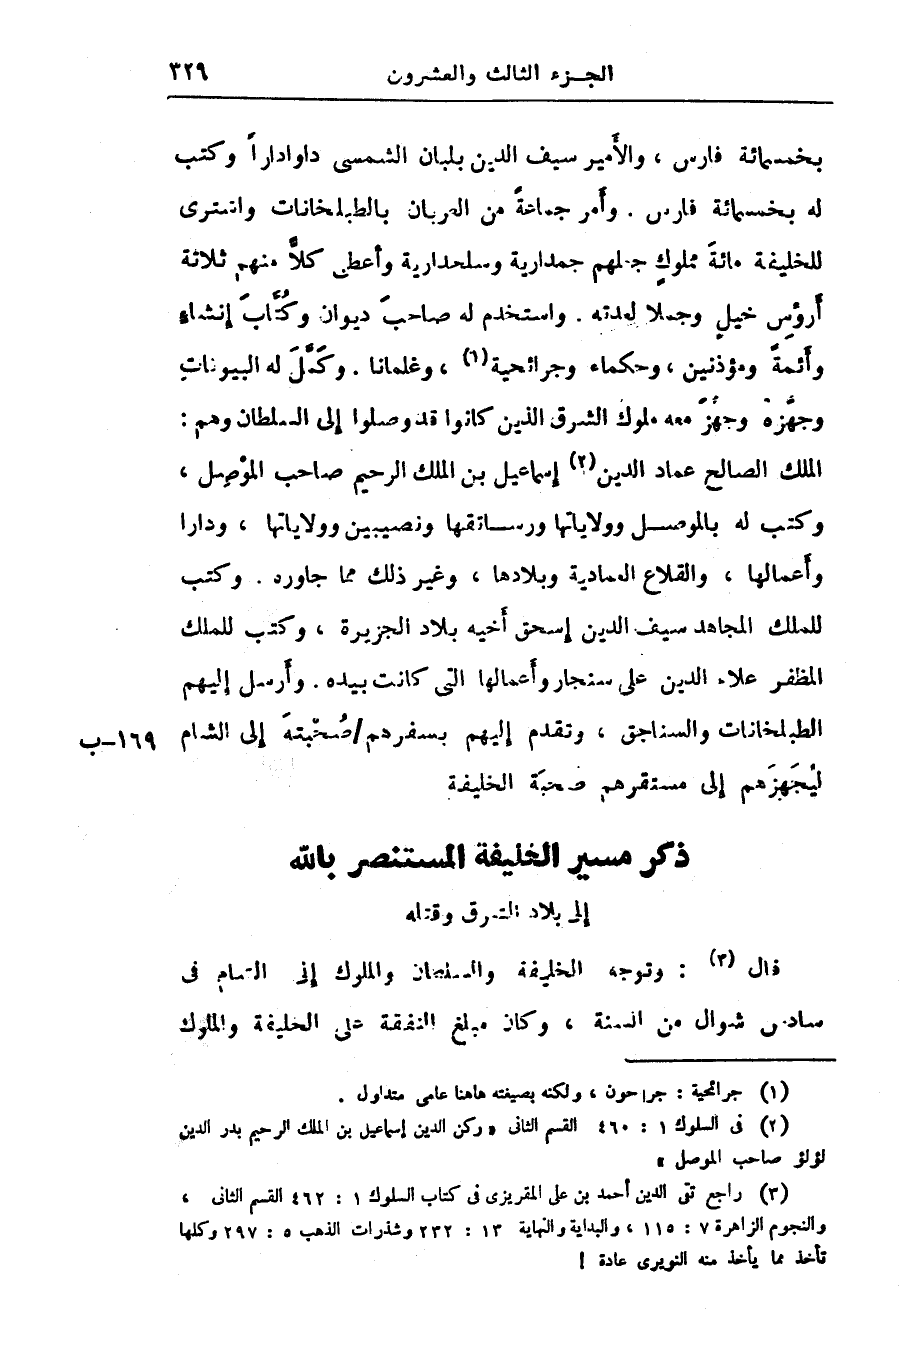 الجزء الثالث والعشرون ٣٢٩
بخمسمائة فارس ، والأمير سيف الدين بلبان الشمسى داوداراً وكتب
له بخمسمائة فارس . وأمر جماعةً من العربان بالطبلخانات واشترى
للخليفة مائةَ مملوكٍ جعلهم جمدارية وسلحدارية وأعطى كلاًّ منهم ثلاثة
أرؤُسِ خيلٍ وجملا لعدته . واستخدم له صاحبَ ديوان وكُتَّابَ إنشاءٍ
وأئمةً ومؤذنين ، وحكماء وجرائحية(١) ، وغلمانا . وكَمَّلَ له البيوتات
وجهَّزه وجهَّزَ معه ملوك الشرق الذين كانوا قد وصلوا إلى السلطان وهم :
الملك الصالح عماد الدين(٢) إسماعيل بن الملك الرحيم صاحب الموْصِل ،
وكتب له بالموصل وولاياتها ورساتقها ونصيبين وولاياتها ، ودارا
وأعمالها ، والقلاع العمادية وبلادها ، وغير ذلك مما جاوره . وكتب
للملك المجاهد سيف الدين إسحق أخيه بلاد الجزيرة ، وكتب للملك
المظفر علاء الدين على سنجار وأعمالها التى كانت بيده . وأرسل إليهم
الطبلخانات والسناجق ، وتقدم إليهم بسفرهم/صُحْبتهَ إلى الشام ١٦٩-ب
ليُجَهِزَهم إلى مستقرهم صحبَة الخليفة
ذكر مسير الخليفة المستنصر بالله
إلى بلاد الشرق وقتله
قال (٣) : وتوجه الخليفة والسلطان والملوك إلى الشام فى
سادس شوال من السنة ، وكان مبلغ النفقة على الخليفة والملوك
(١) جرائحية : جراحون ، ولكنه بصيغته هاهنا عامى متداول .
(٢) فى السلوك ١ : ٤٦٠ القسم الثانى « ركن الدين إسماعيل بن الملك الرحيم بدر الدين
لؤلؤ صاحب الموصل »
(٣) راجع تقى الدين أحمد بن على المقريزى فى كتاب السلوك ١ : ٤٦٢ القسم الثانى ،
والنجوم الزاهرة ٧ : ١١٥ ، والبداية والنهاية ١٣ : ٢٣٢ وشذرات الذهب ٥ : ٢٩٧ وكلها
تأخذ مما يأخذ منه النويرى عادة !